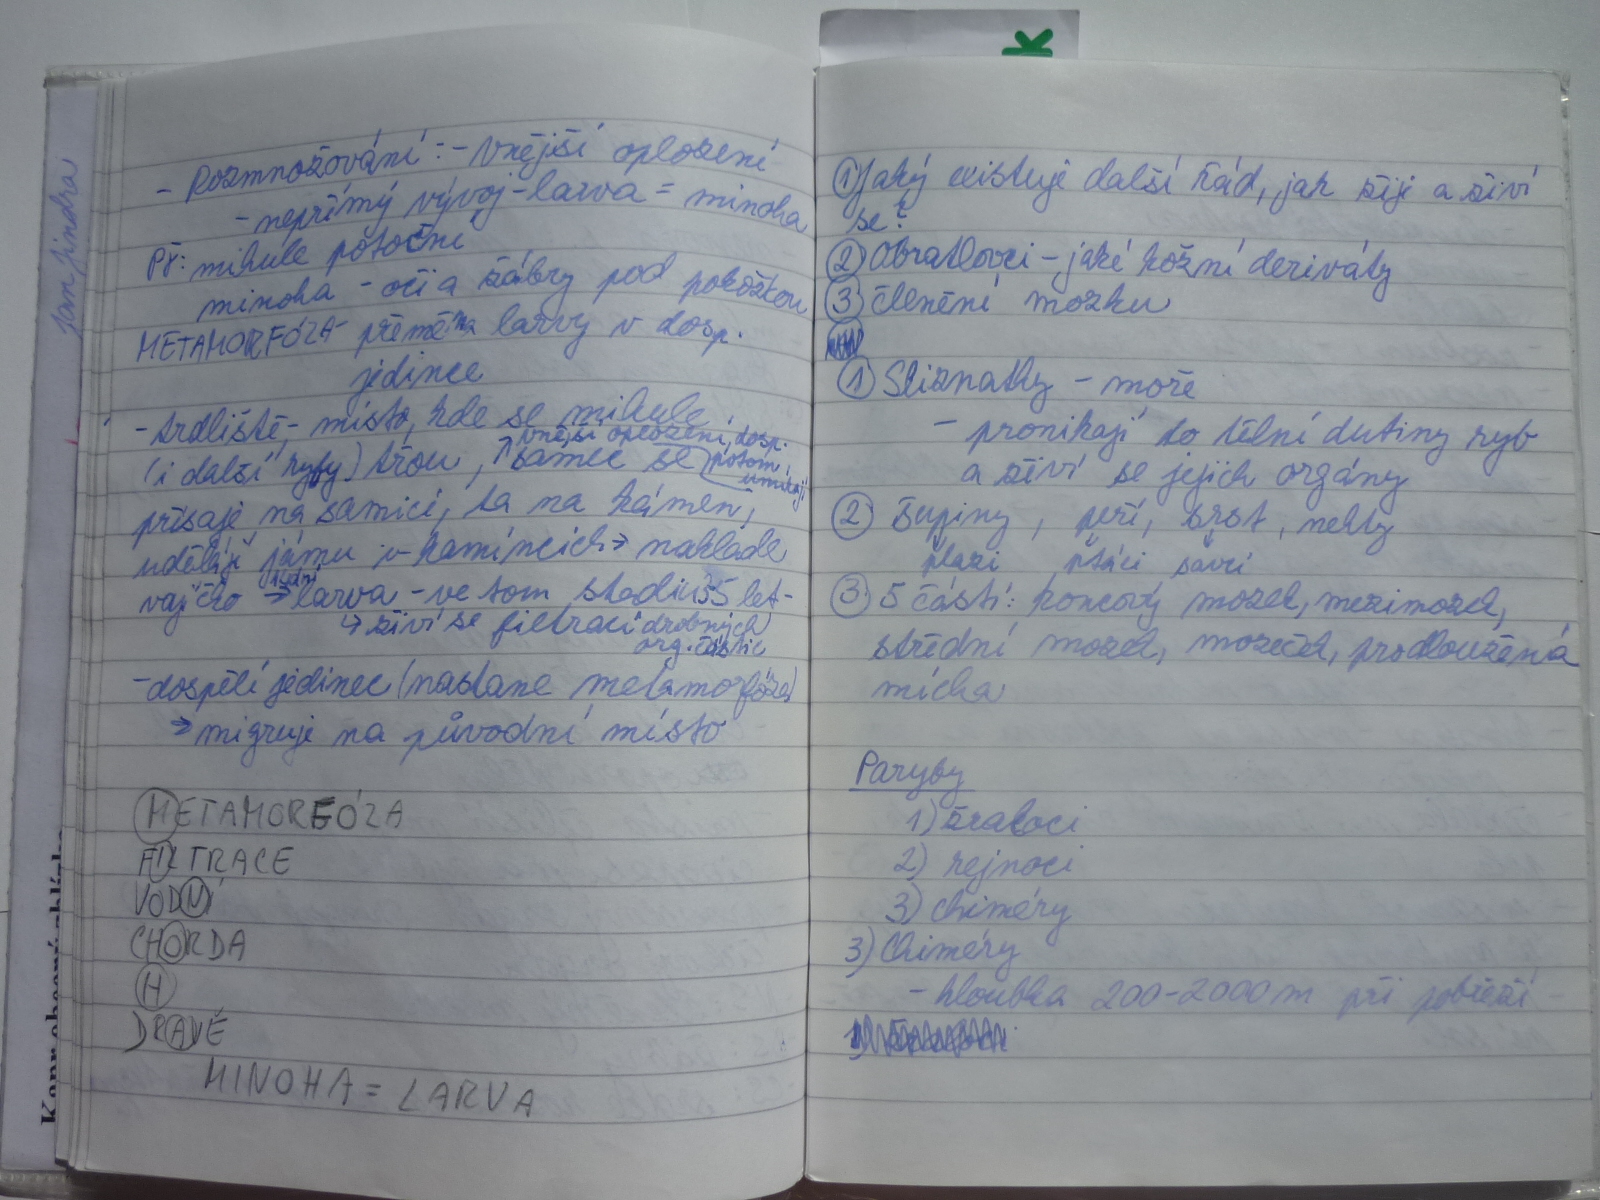 Jan Jindra
- Rozmnožování: - Vnější oplození
- nepřímý vývoj - larva = minoha
Př: mihule potoční
minoha - oči a žábry pod pokožkou
METAMORFÓZA - přeměna larvy v dosp.
jedince
- trdliště - místo, kde se mihule
vnější oplození, dosp.
(i další ryby) třou, samec se
potom
umírají
přisaje na samici, ta na kámen,
udělají jámu v kamíncích → naklade
vajíčko → larva - ve tom stadiu 3-5 let -
↳ živí se filtrací drobných
org. částic
- dospělí jedinec (nastane metamorfóza)
→ migruje na původní místo
METAMORFÓZA
FILTRACE
VODNÍ
CHORDA
H
DRAVÉ
MINOHA = LARVA
K
① Jaký existuje další řád, jak žijí a živí
se?
② Obratlovci - jaké kožní deriváty
③ členění mozku
① Sliznatky - moře
- pronikají do tělní dutiny ryb
a živí se jejich orgány
② Šupiny, peří, srst, nehty
plazi ptáci savci
③ 5 částí: koncový mozek, mezimozek,
střední mozek, mozeček, prodloužená
mícha
Paryby
1) žraloci
2) rejnoci
3) chiméry
3) Chiméry
- hloubka 200-2000 m při pobřeží